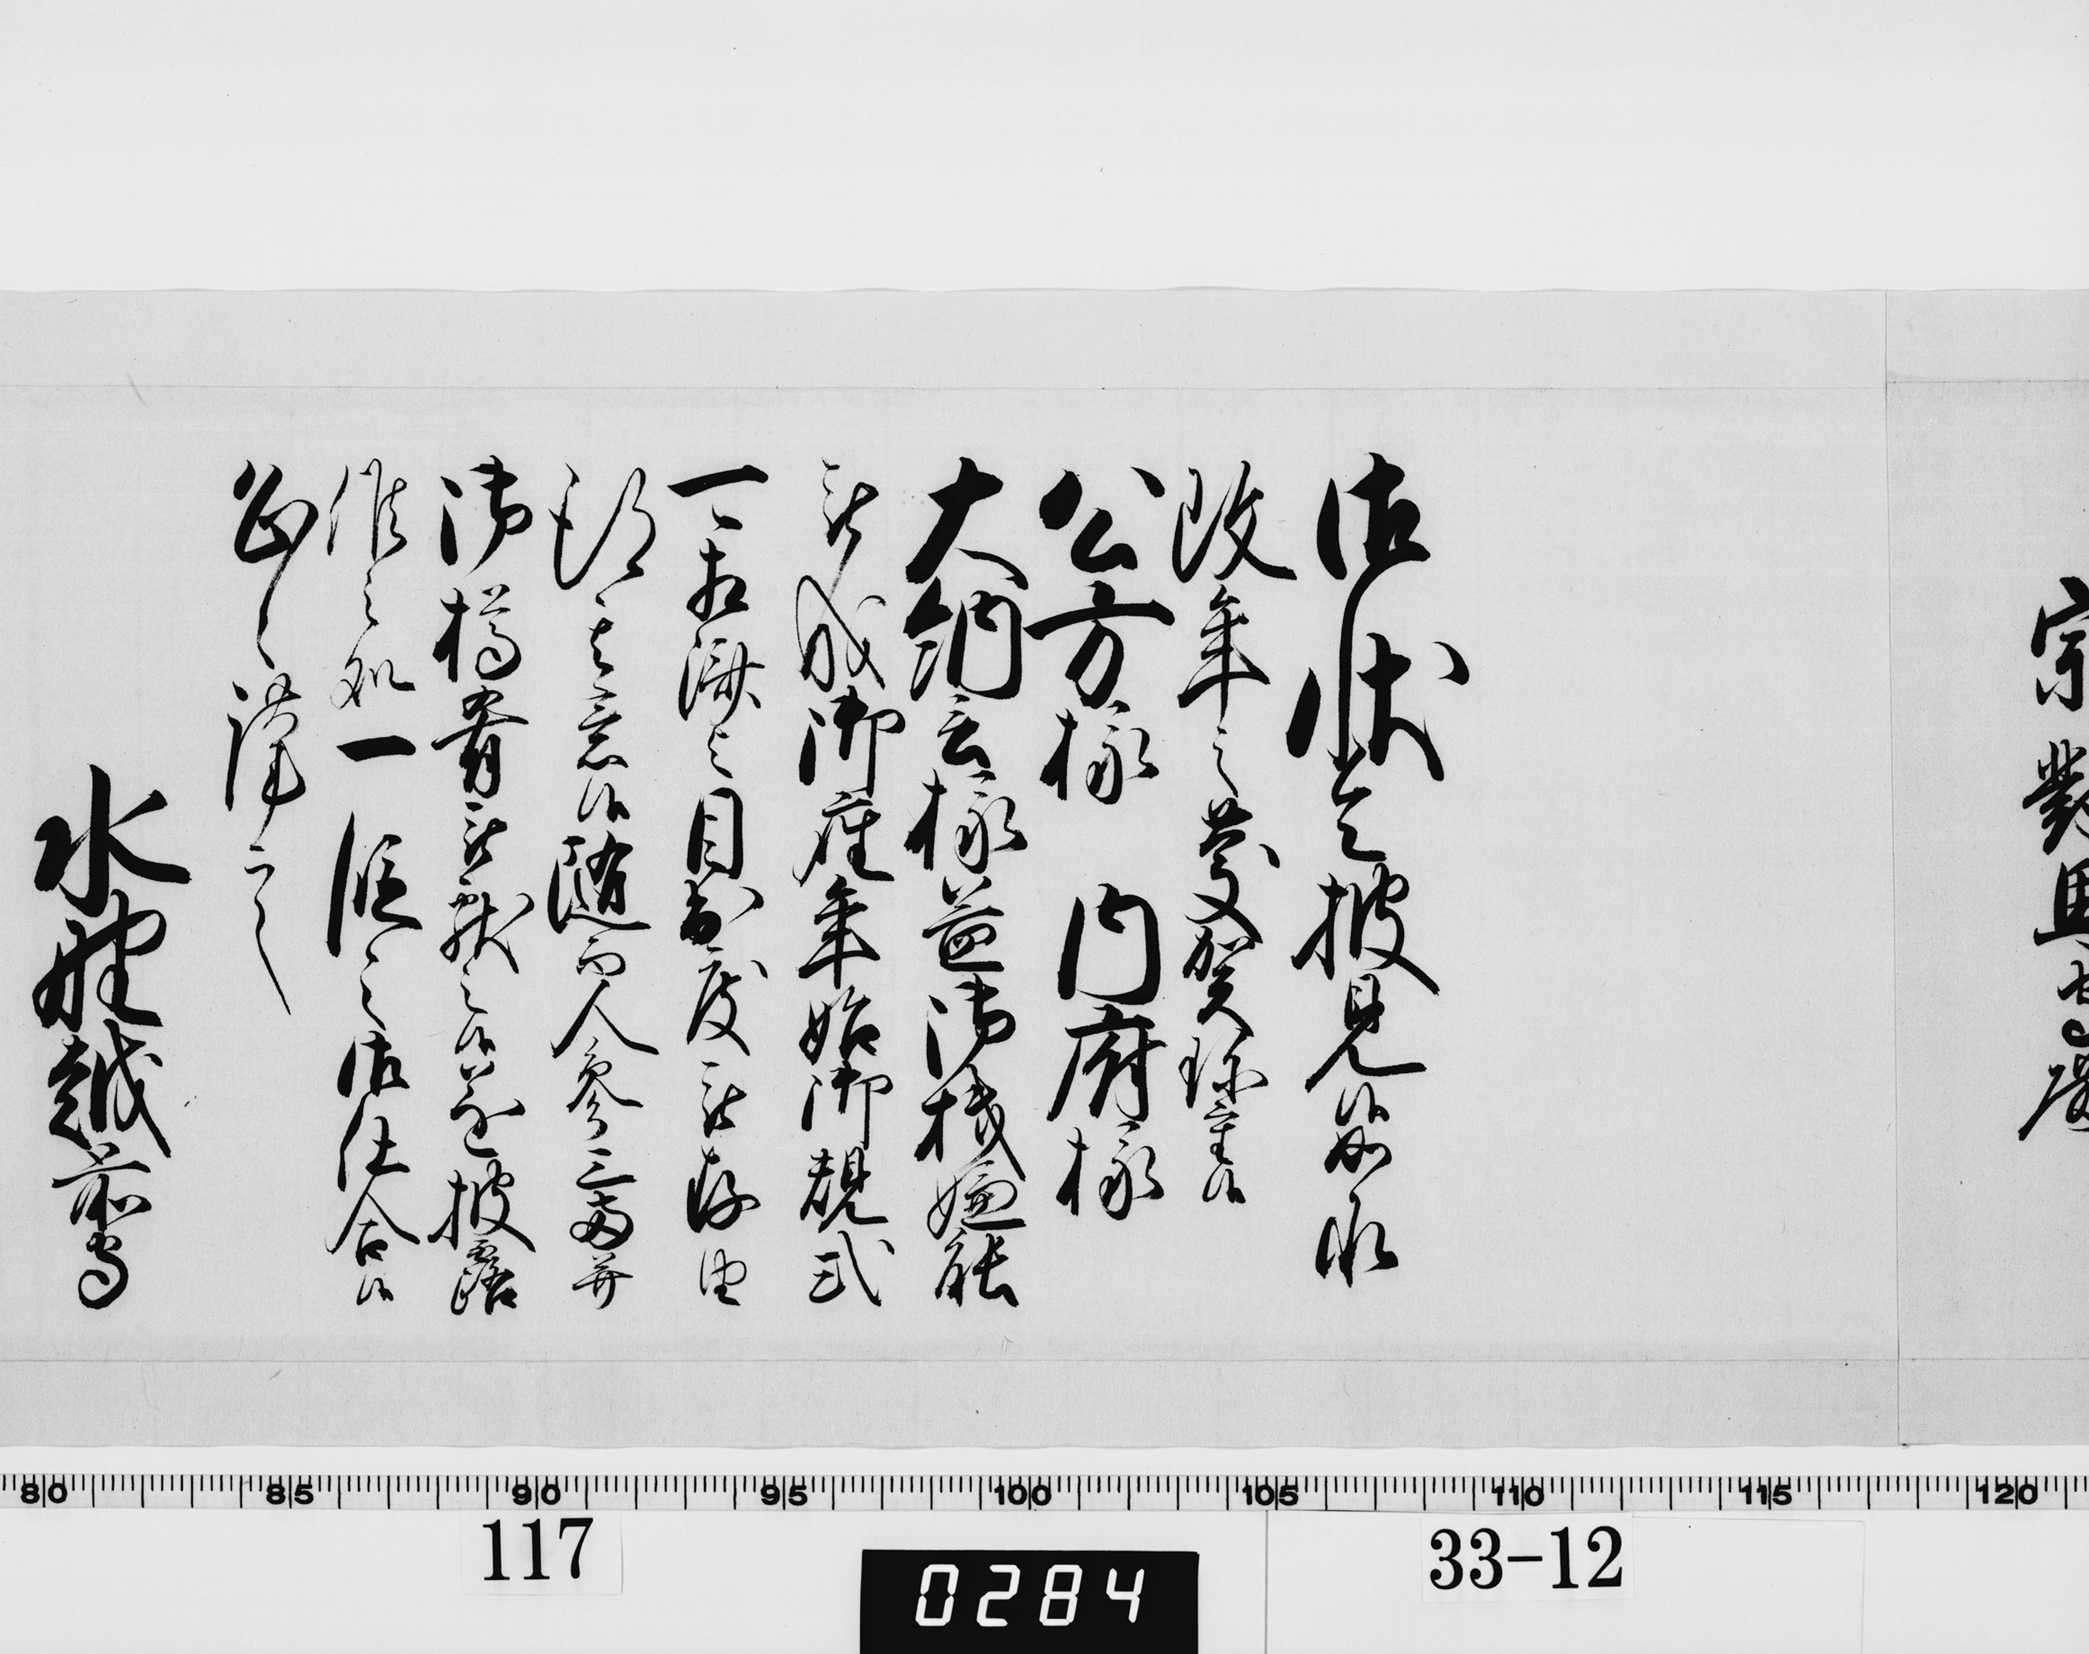 宗對馬守殿
御状令披見候如承
改年之慶賀珍重候
公方様　内府様
大納言様益御機嫌能
被成御座年始御規式
一々相済之目出度被存由
得其意候随而人参三両并
御樽肴被献之候遂披露
候之処一段之御仕合候
恐々謹言
水野越前守
80 85 90 95 100 105 110 115 120
117
33-12
0284